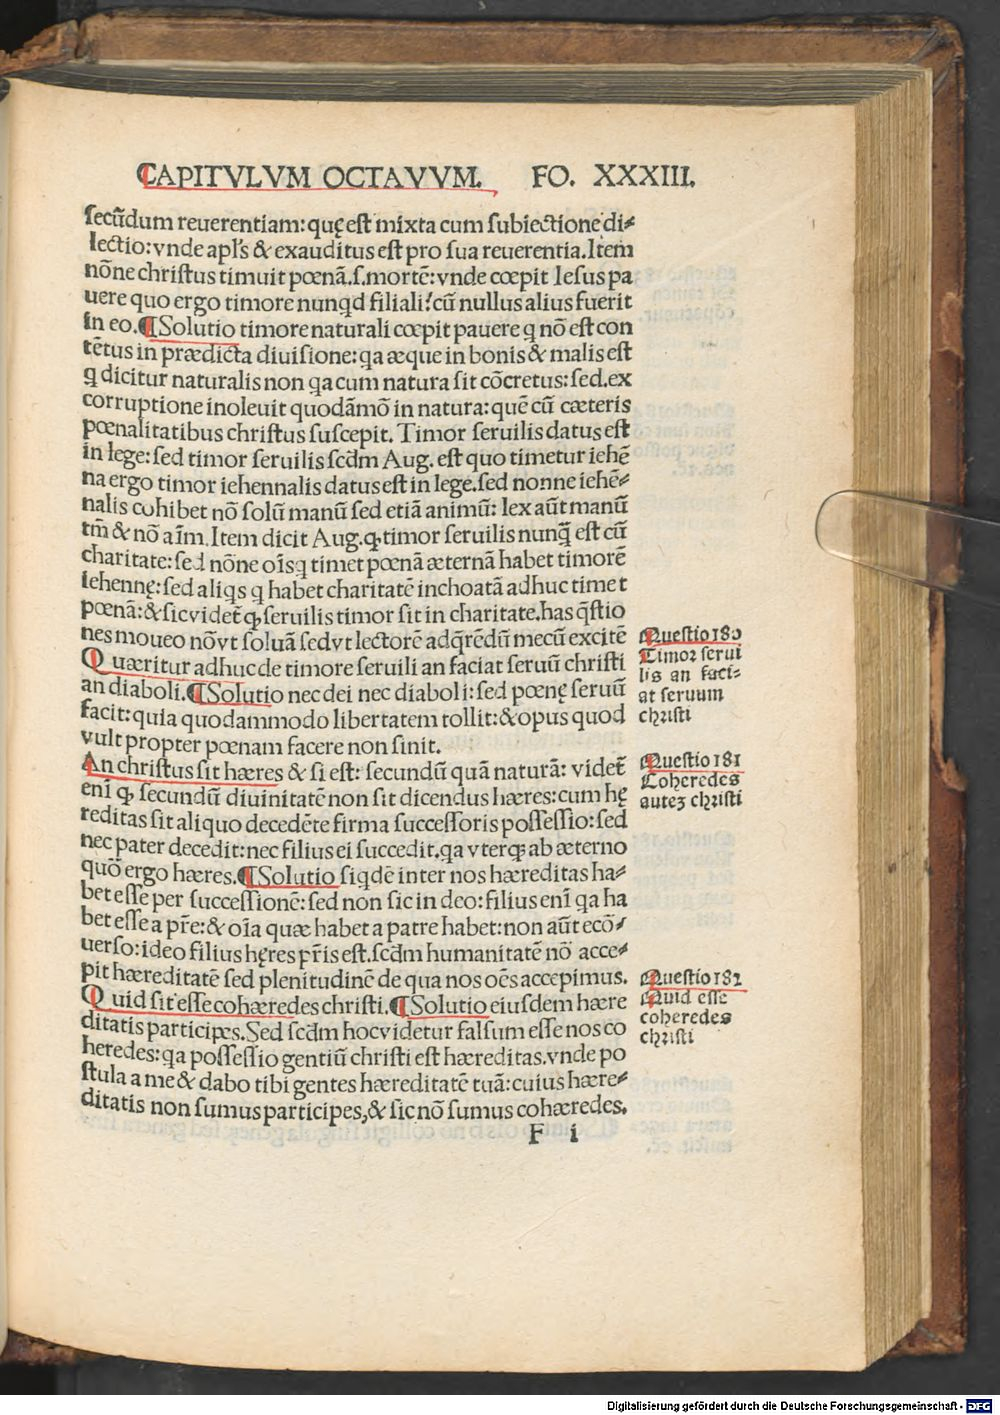 CAPITVLVM OCTAVVM. FO. XXXIII.
ſecũdum reuerentiam: quę eſt mixta cum ſubiectione di⸗
lectio: vnde apl's & exauditus eſt pro ſua reuerentia. Item
nõne chriſtus timuit pœnã. ſ. mortẽ: vnde cœpit Ieſus pa
uere quo ergo timore nunqd filiali? cũ nullus alius fuerit
in eo. ¶ Solutio timore naturali cœpit pauere q nõ eſt con
tẽtus in prædicta diuiſione: qa æque in bonis & malis eſt
q dicitur naturalis non qa cum natura ſit cõcretus: ſed. ex
corruptione inoleuit quodãmõ in natura: quẽ cũ cæteris
pœnalitatibus chriſtus ſuſcepit. Timor ſeruilis datus eſt
in lege: ſed timor ſeruilis ſcd̃m Aug. eſt quo timetur iehẽ
na ergo timor iehennalis datus eſt in lege. ſed nonne iehẽ⸗
nalis cohibet nõ ſolũ manũ ſed etiã animũ: lex aũt manũ
tm̃ & nõ aĩm. Item dicit Aug. ꝙ timor ſeruilis nunq̃ eſt cũ
charitate: ſed nõne oĩs q timet pœnã æternã habet timorẽ
iehennę: ſed aliqs q habet charitatẽ inchoatã adhuc timet
pœnã: & ſic videt̃ ꝙ ſeruilis timor ſit in charitate. has q̃ſtio
nes moueo nõ vt ſoluã ſed vt lectorẽ ad q̃rẽdũ mecũ excitẽ
Quæritur adhuc de timore ſeruili an faciat ſeruũ chriſti
an diaboli. ¶ Solutio nec dei nec diaboli: ſed pœnę ſeruũ
facit: quia quodammodo libertatem tollit: & opus quod
vult propter pœnam facere non ſinit.
An chriſtus ſit hæres & ſi eſt: ſecundũ quã naturã: videt̃
enĩ ꝙ ſecundũ diuinitatẽ non ſit dicendus hæres: cum hę
reditas ſit aliquo decedẽte firma ſucceſſoris poſſeſſio: ſed
nec pater decedit: nec filius ei ſuccedit. qa vterq; ab æterno
quõ ergo hæres. ¶ Solutio ſiqdẽ inter nos hæreditas ha⸗
bet eſſe per ſucceſſionẽ: ſed non ſic in deo: filius enĩ qa ha
bet eſſe a pr̃e: & oĩa quæ habet a patre habet: non aũt ecõ⸗
uerſo: ideo filius hęres pr̃is eſt. ſcd̃m humanitatẽ nõ acce⸗
pit hæreditatẽ ſed plenitudinẽ de qua nos oẽs accepimus.
Quid ſit eſſe cohæredes chriſti. ¶ Solutio eiuſdem hære
ditatis participes. Sed ſcd̃m hoc videtur falſum eſſe nos co
heredes: qa poſſeſſio gentiũ chriſti eſt hæreditas. vnde po
ſtula a me & dabo tibi gentes hæreditatẽ tuã: cuius hære⸗
ditatis non ſumus participes, & ſic nõ ſumus cohæredes.
F i
Queſtio 180
Timor ſerui
lis an faci⸗
at ſeruum
chriſti
Queſtio 181
Coheredes
autez chriſti
Queſtio 182
Quid eſſe
coheredes
chriſti
Digitalisierung gefördert durch die Deutsche Forschungsgemeinschaft - DFG